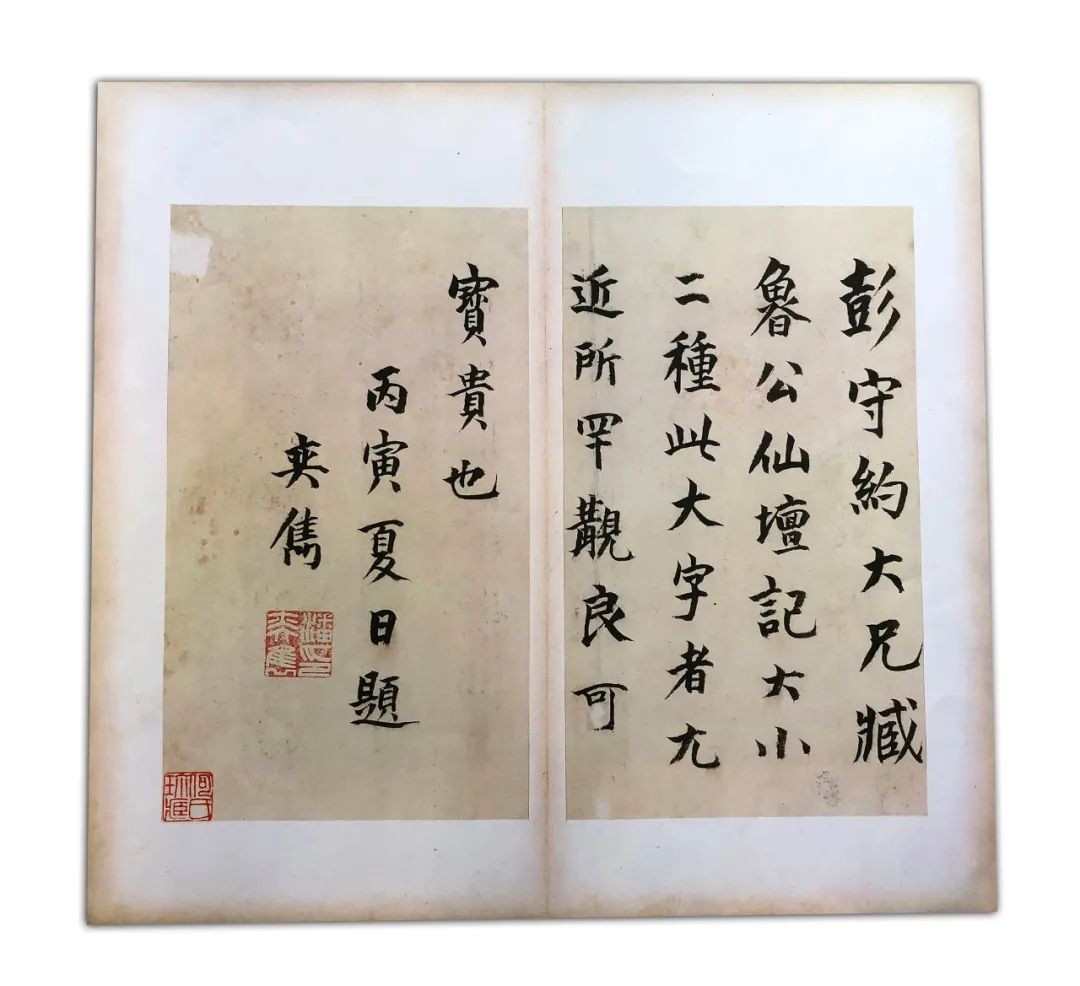 彭守約大兄臧
魯公仙壇記大小
二種此大字者尢
近所罕覯良可
寶貴也
丙寅夏日題
奕雋